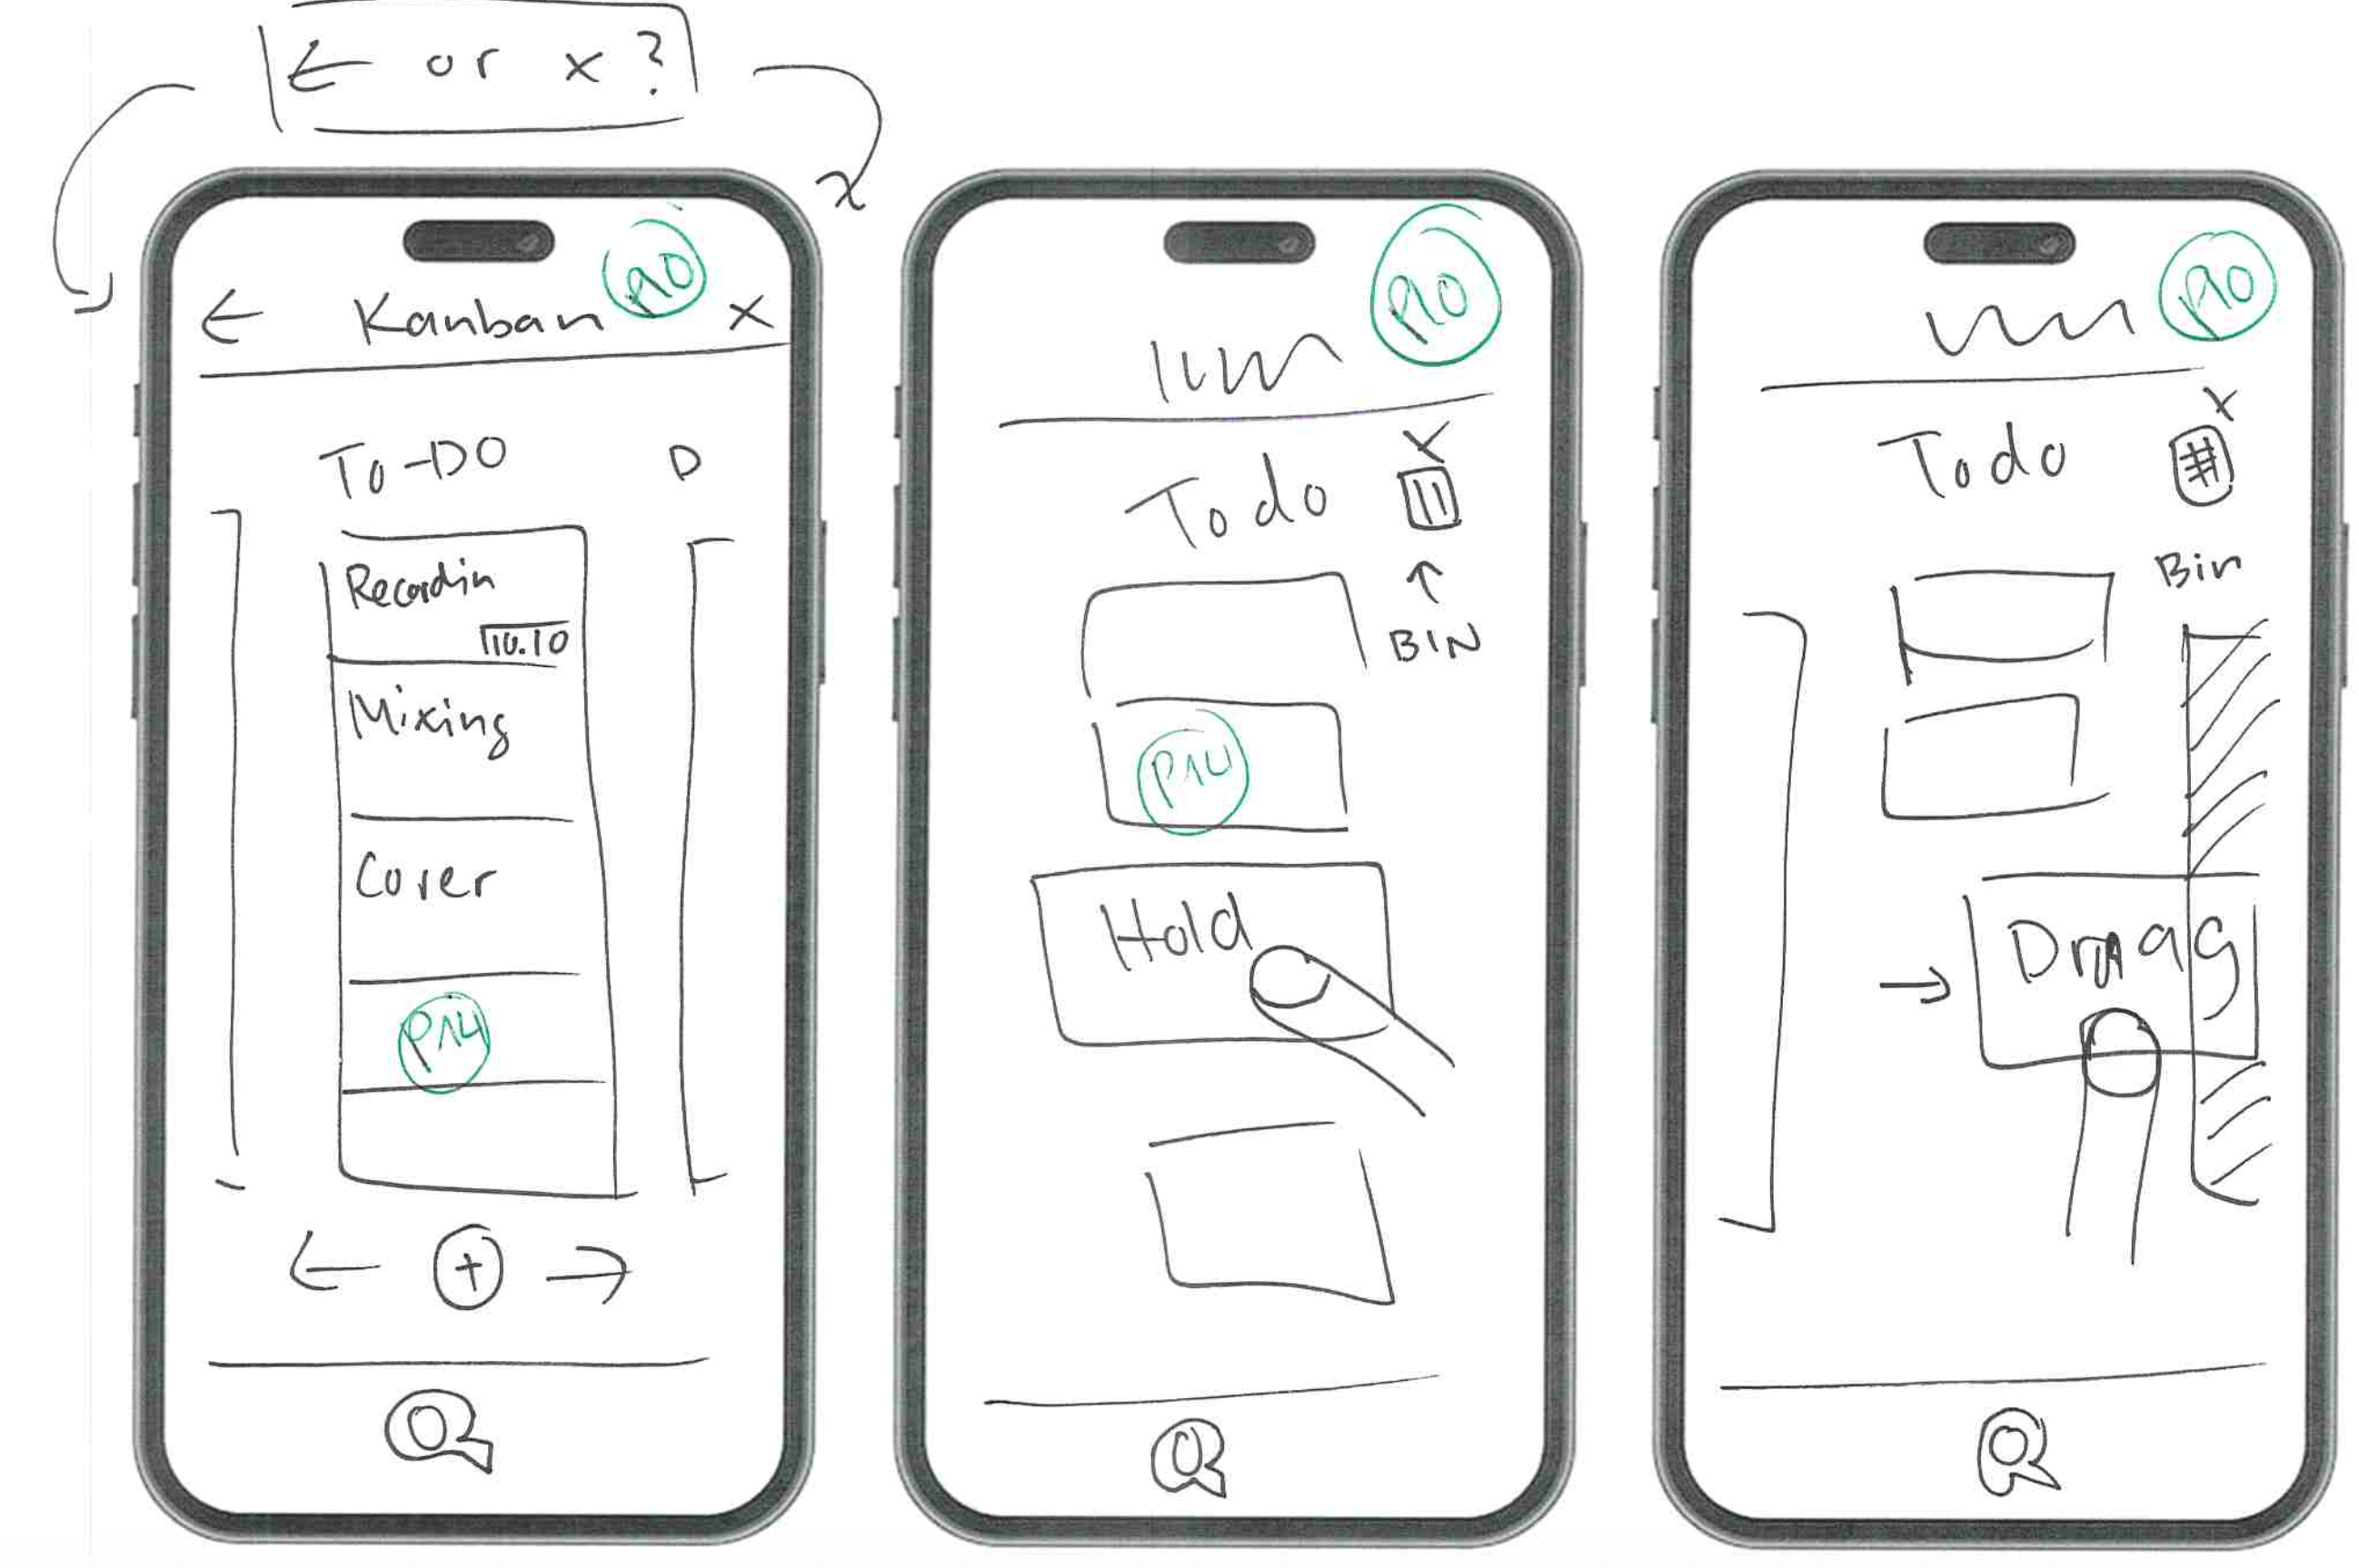 ← or x?
← Kanban P10 x
To-DO D
Recordin
10.10
Mixing
Cover
P14
← + →
P10
Todo x
BIN
P14
Hold
P10
x
Todo
Bin
Drag